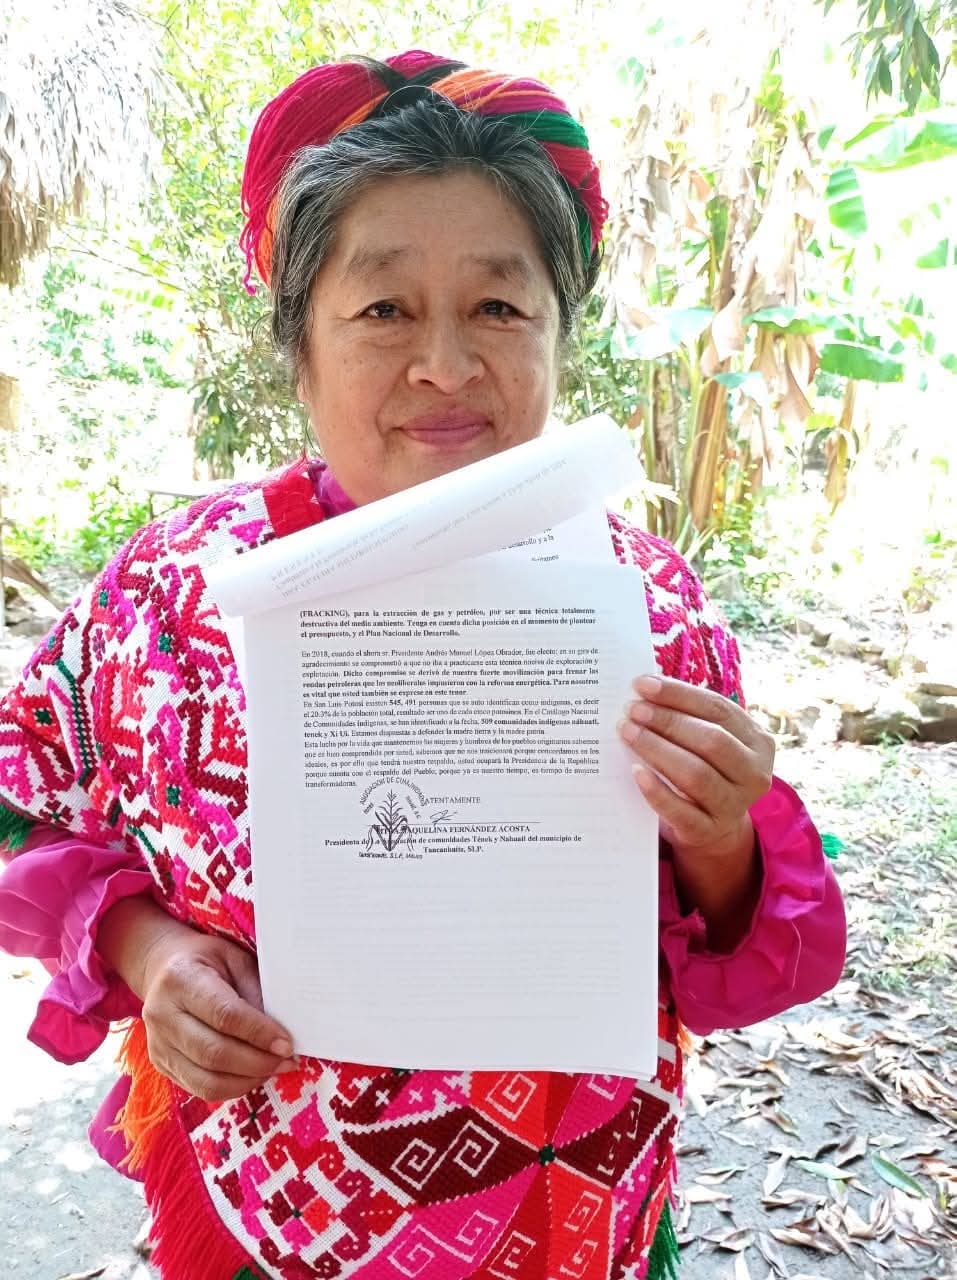 desarrollo y a la
(FRACKING), para la extracción de gas y petróleo, por ser una técnica totalmente
destructiva del medio ambiente. Tenga en cuenta dicha posición en el momento de plantear
el presupuesto, y el Plan Nacional de Desarrollo.
En 2018, cuando el ahora sr. Presidente Andrés Manuel López Obrador, fue electo; en su gira de
agradecimiento se comprometió a que no iba a practicarse esta técnica nociva de exploración y
explotación. Dicho compromiso se derivó de nuestra fuerte movilización para frenar las
rondas petroleras que los neoliberales impusieron con la reforma energética. Para nosotros
es vital que usted también se exprese en este tenor.
En San Luis Potosí existen 545, 491 personas que se auto identifican como indígenas, es decir
el 20.3% de la población total, resultado ser uno de cada cinco paisanos. En el Catálogo Nacional
de Comunidades Indígenas, se han identificado a la fecha, 509 comunidades indígenas náhuatl,
tenek y Xi Ui. Estamos dispuestas a defender la madre tierra y la madre patria.
Esta lucha por la vida que mantenemos las mujeres y hombres de los pueblos originarios sabemos
que es bien comprendida por usted, sabemos que no nos traicionará porque concordamos en los
ideales, es por ello que tendrá nuestro respaldo, usted ocupará la Presidencia de la República
porque cuenta con el respaldo del Pueblo, porque ya es nuestro tiempo, es tiempo de mujeres
transformadoras.
ATENTAMENTE
AQUELINA FERNÁNDEZ ACOSTA
Presidenta de La Asociación de comunidades Tének y Nahuatl del municipio de
Tancanhuitz, SLP.
ASOCIACION DE
S.L.P., México